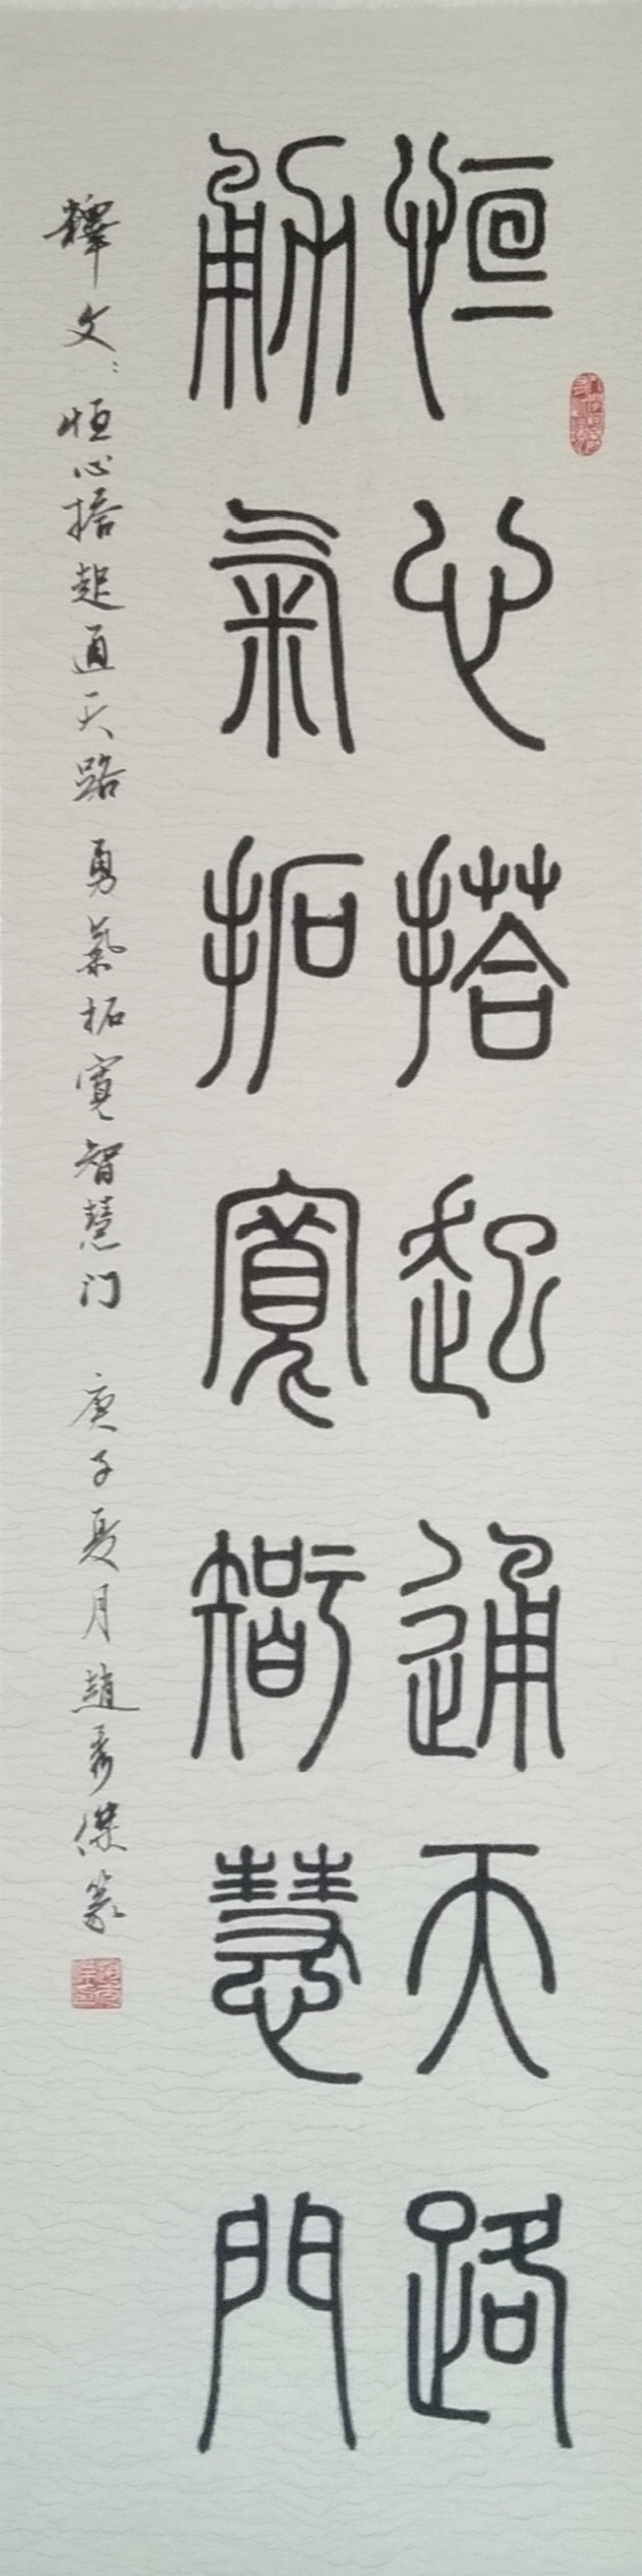 恒心搭起通天路
勇氣拓寬智慧門
釋文：恒心搭起通天路 勇氣拓寬智慧门 庚子夏月趙秀傑篆